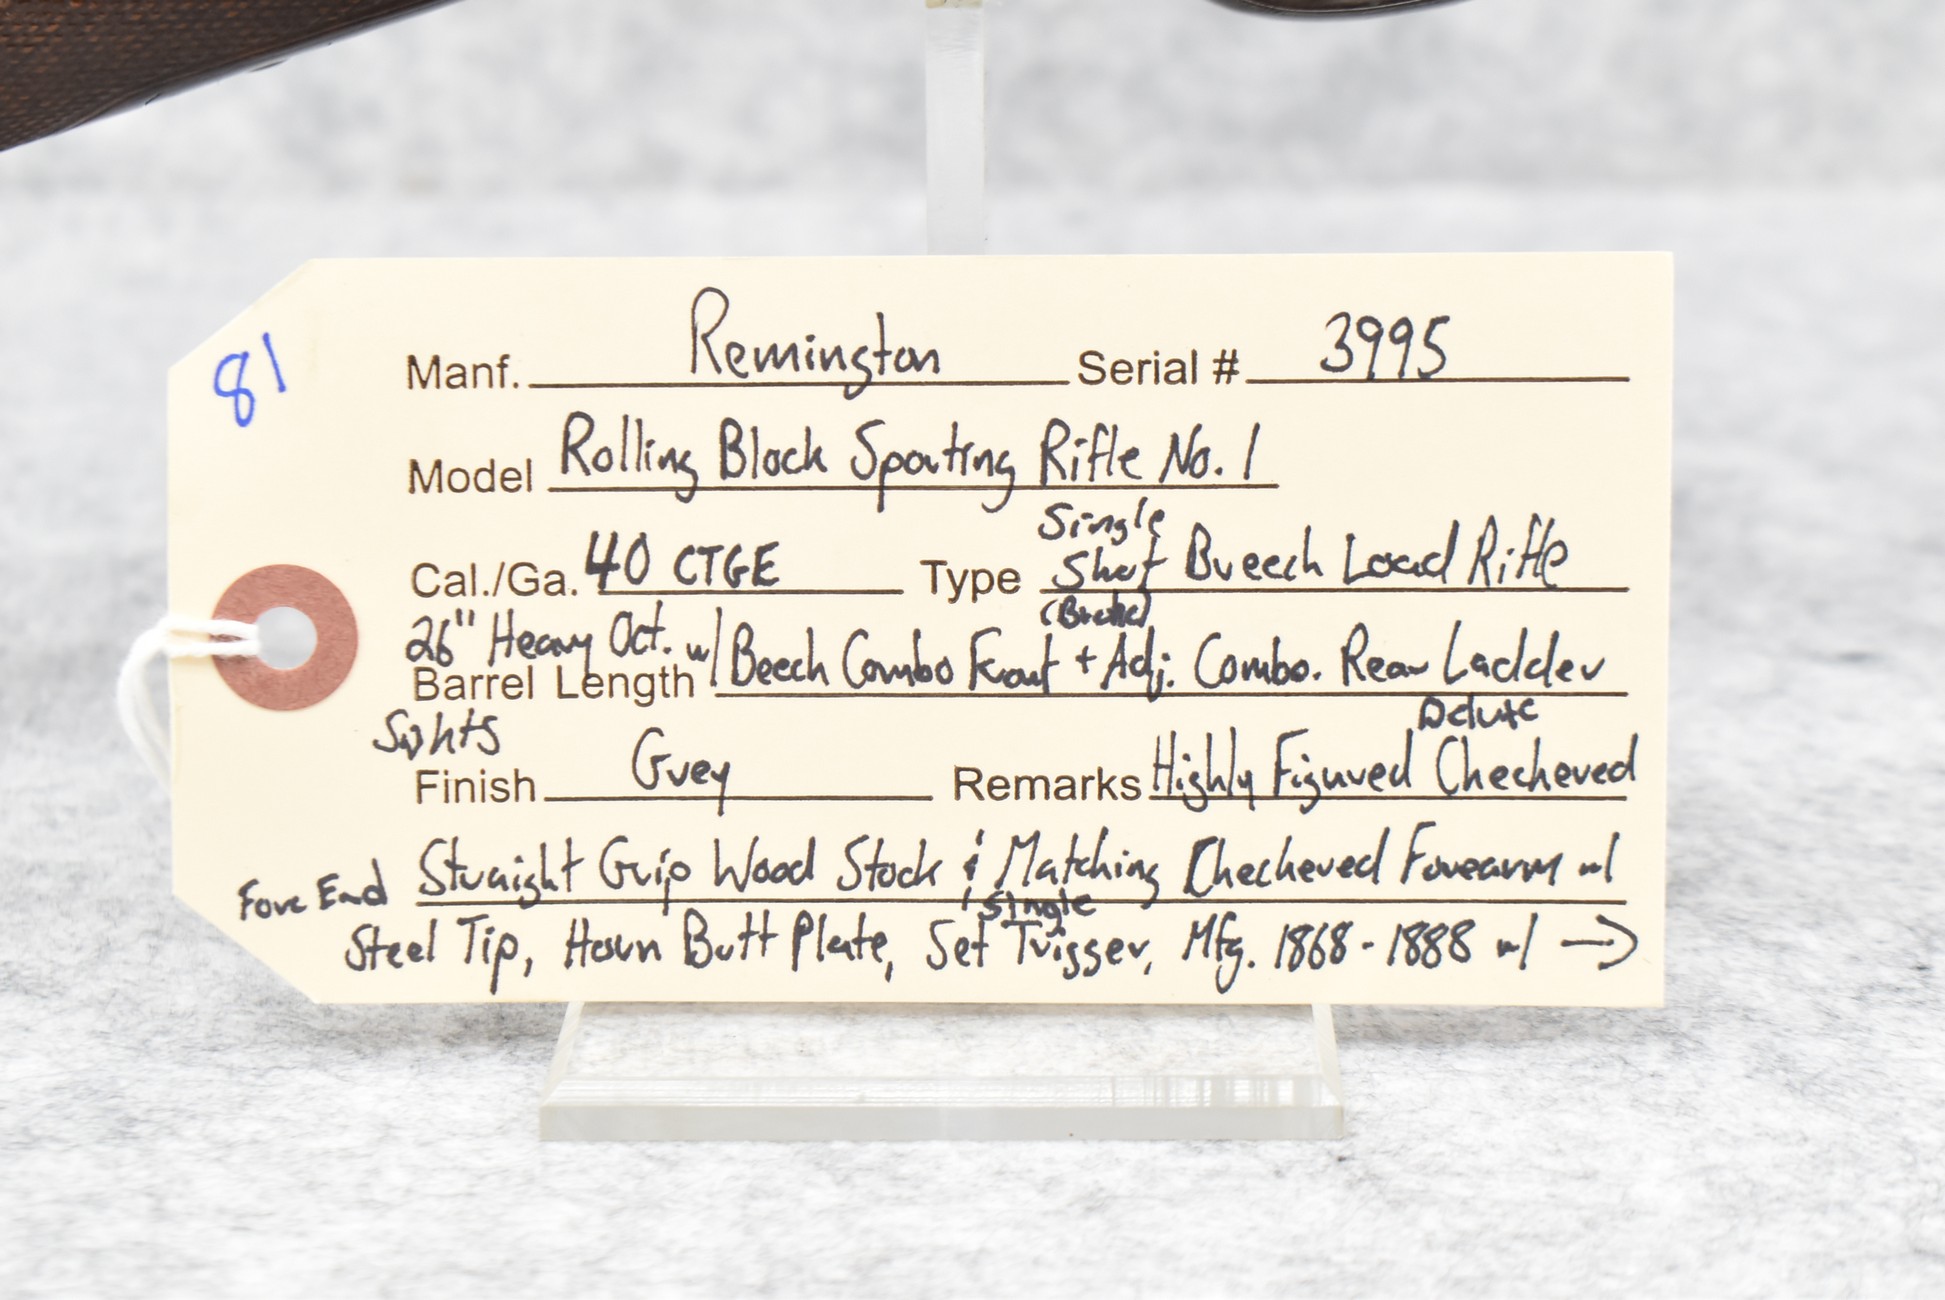 81
Manf. Remington Serial # 3995
Model Rolling Block Sporting Rifle No. 1
Single
Cal./Ga. 40 CTGE Type Shot Breech Load Rifle
26" Heavy Oct. w/ Beech Combo Front + Adj. Combo. Rear Ladder
Barrel Length
Sights
Deluxe
Finish Grey Remarks Highly Figured Checkered
Straight Grip Wood Stock & Matching Checkered Forearm w/
Fore End
single
Steel Tip, Horn Butt Plate, Set Trigger, Mfg. 1868-1888 w/ →